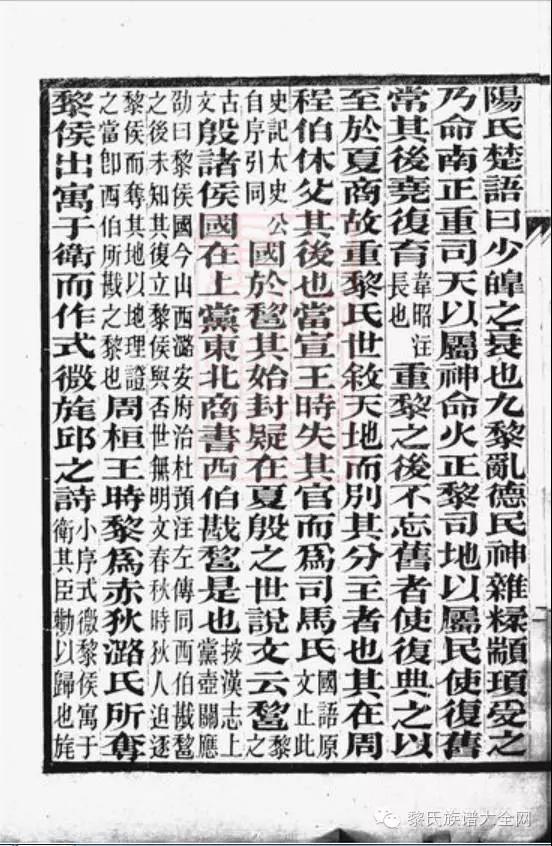 陽氏楚語曰少皥之衰也九黎亂德民神雜糅顓頊受之
乃命南正重司天以屬神命火正黎司地以屬民使復舊
常其後堯復育韋昭注長也重黎之後不忘舊者使復典之以
至於夏商故重黎氏世敘天地而別其分主者也其在周
程伯休父其後也當宣王時失其官而爲司馬氏國語原文止此
史記太史公自序引同國於𨛫其始封疑在夏殷之世說文云𨛫黎之
古文殷諸侯國在上黨東北商書西伯戡𨛫是也按漢志上黨壺關應
劭曰黎侯國今山西潞安府治杜預注左傳同西伯戡𨛫
之後未知其復立黎侯與否世無明文春秋時狄人迫逐
黎侯而奪其地以地理證之當卽西伯所戡之黎也周桓王時黎爲赤狄潞氏所奪
黎侯出寓于衛而作式微旄邱之詩小序式微黎侯寓于衛其臣勸以歸也旄
黎氏族谱大全网